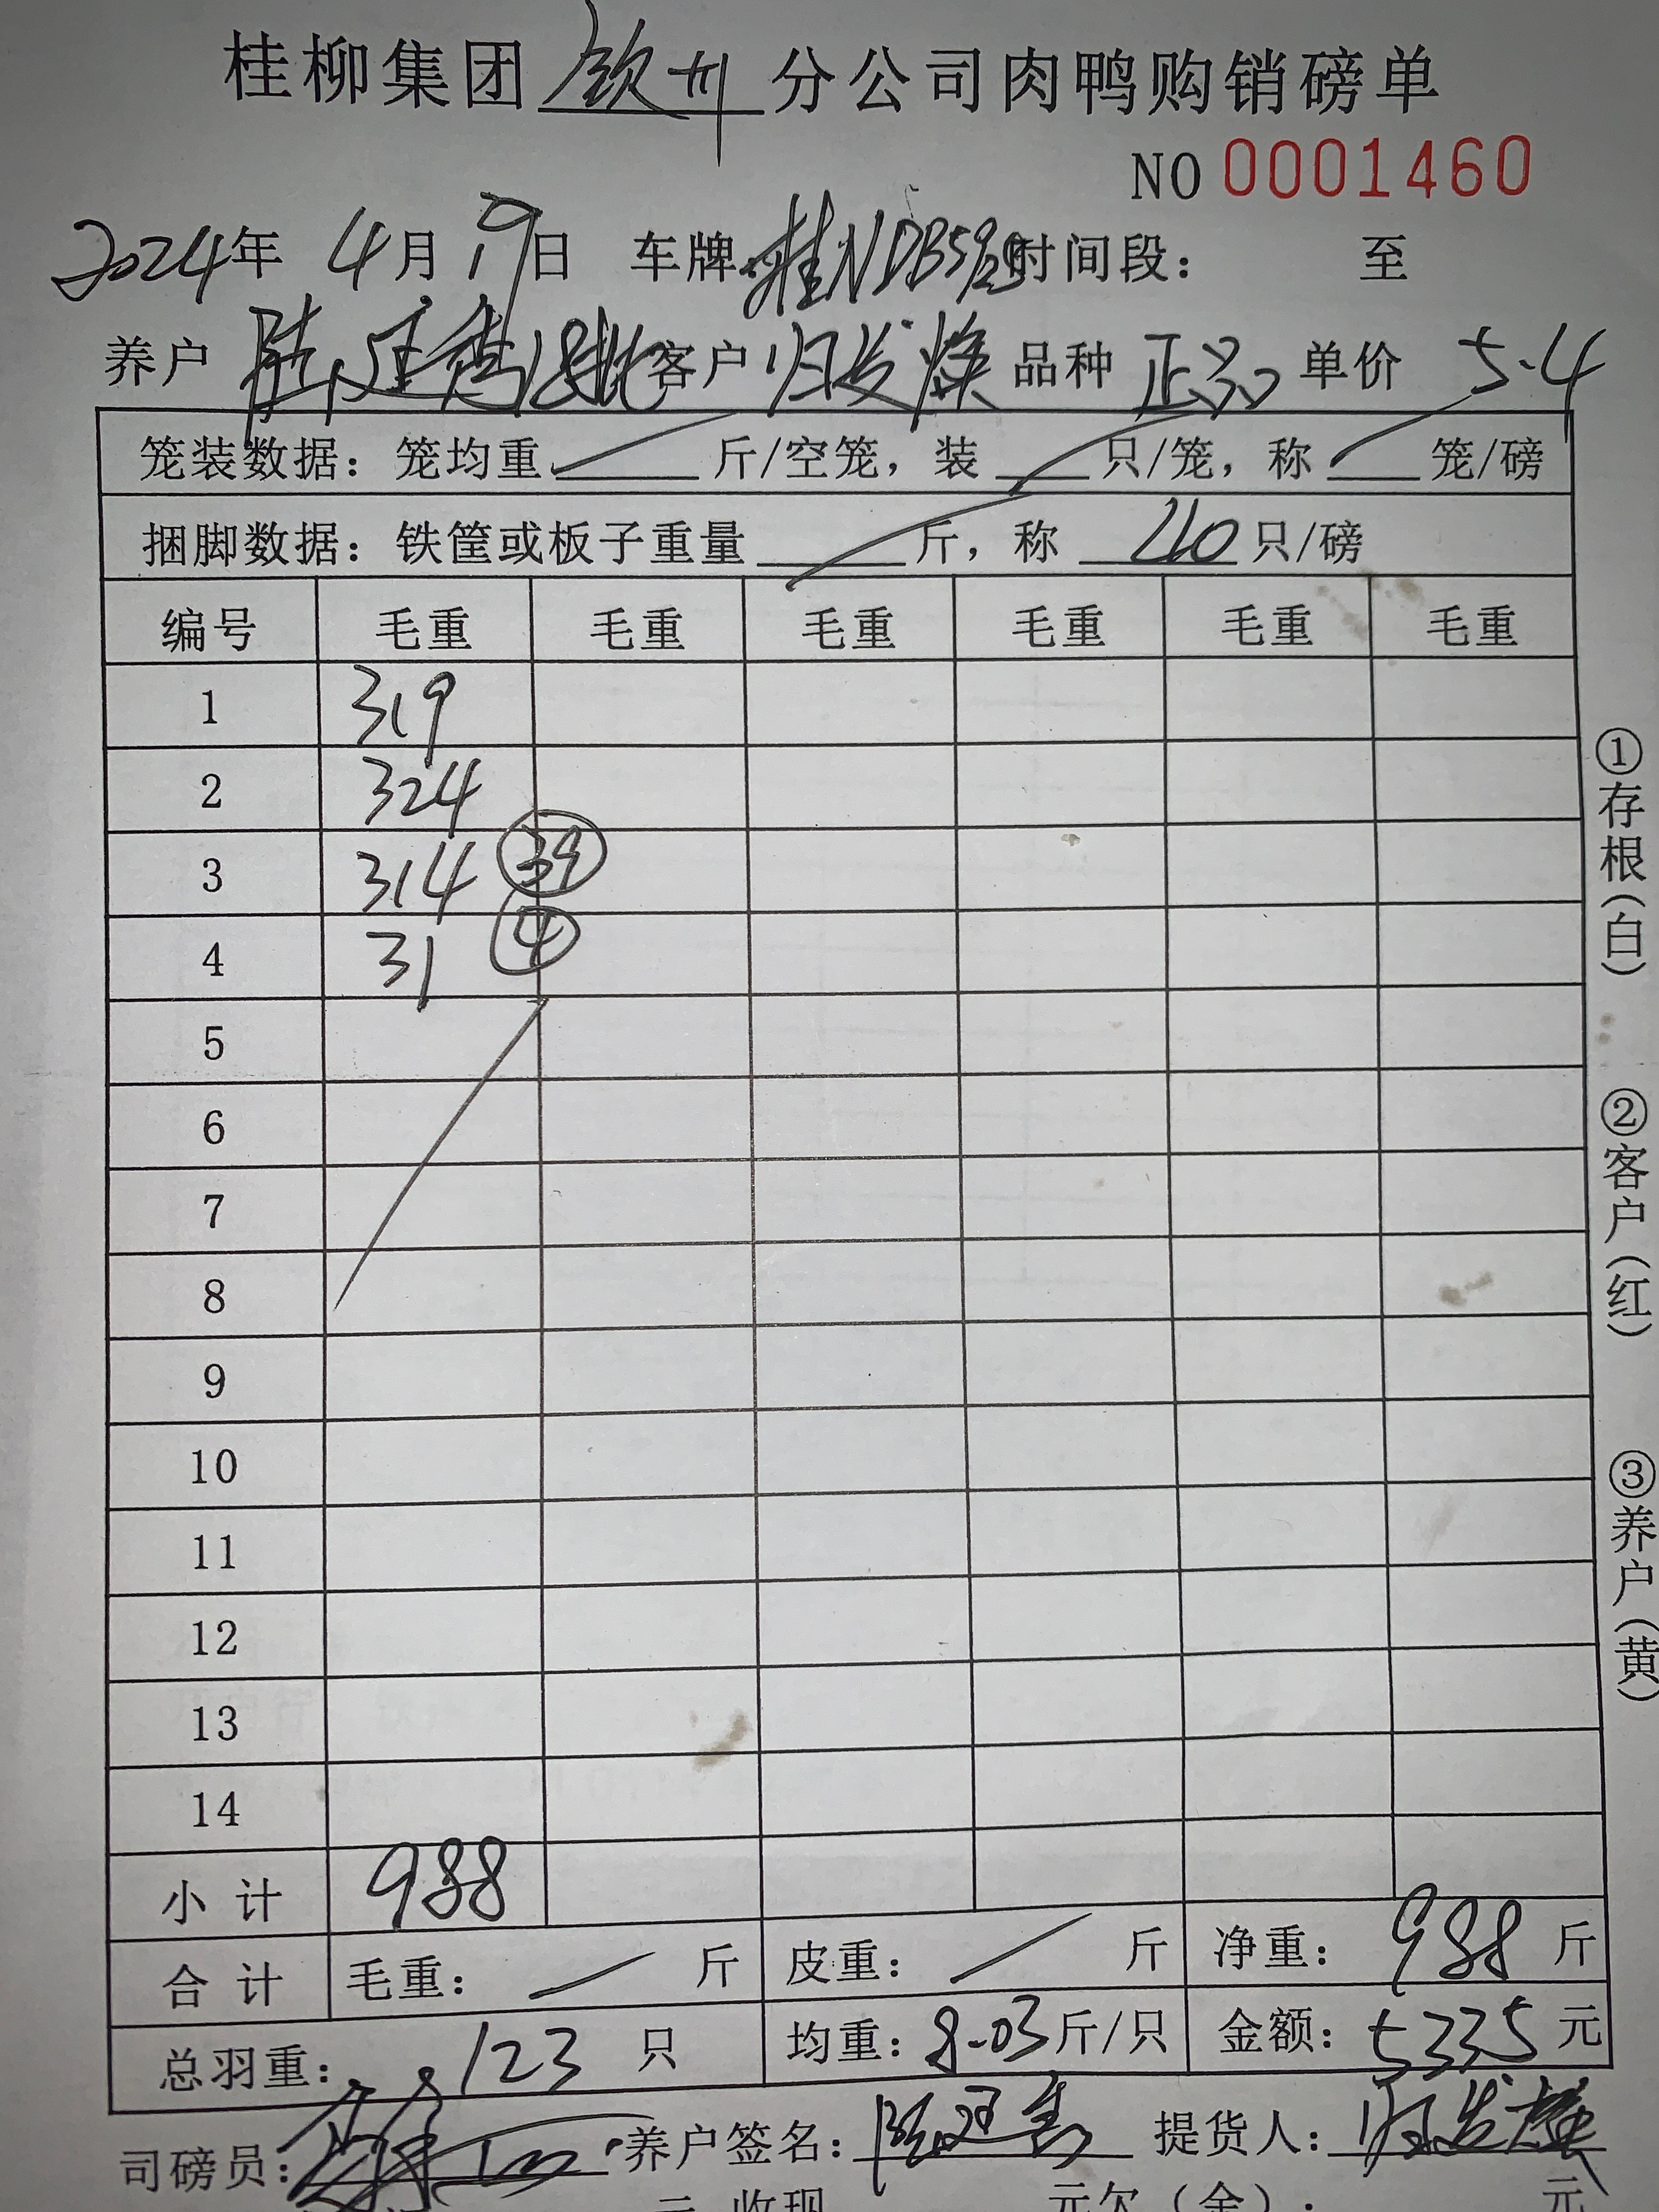 桂柳集团 钦州 分公司肉鸭购销磅单
NO 0001460
2024年 4月 19日 车牌 桂NDB5 时间段： 至
养户 客户 归发焕 品种 正品 单价 5.4
笼装数据：笼均重 斤/空笼，装 只/笼，称 笼/磅
捆脚数据：铁筐或板子重量 斤，称 只/磅
编号 毛重 毛重 毛重 毛重 毛重 毛重
1 319
2 324
3 314 39
4 31 4
5
6
7
8
9
10
11
12
13
14
小 计 988
合 计 毛重： 斤 皮重： 斤 净重： 988 斤
总羽重： 123 只 均重：8.03斤/只 金额：5335元
司磅员： 养户签名： 提货人：
元 收现 元欠（余）： 元
①存根（白）
②客户（红）
③养户（黄）